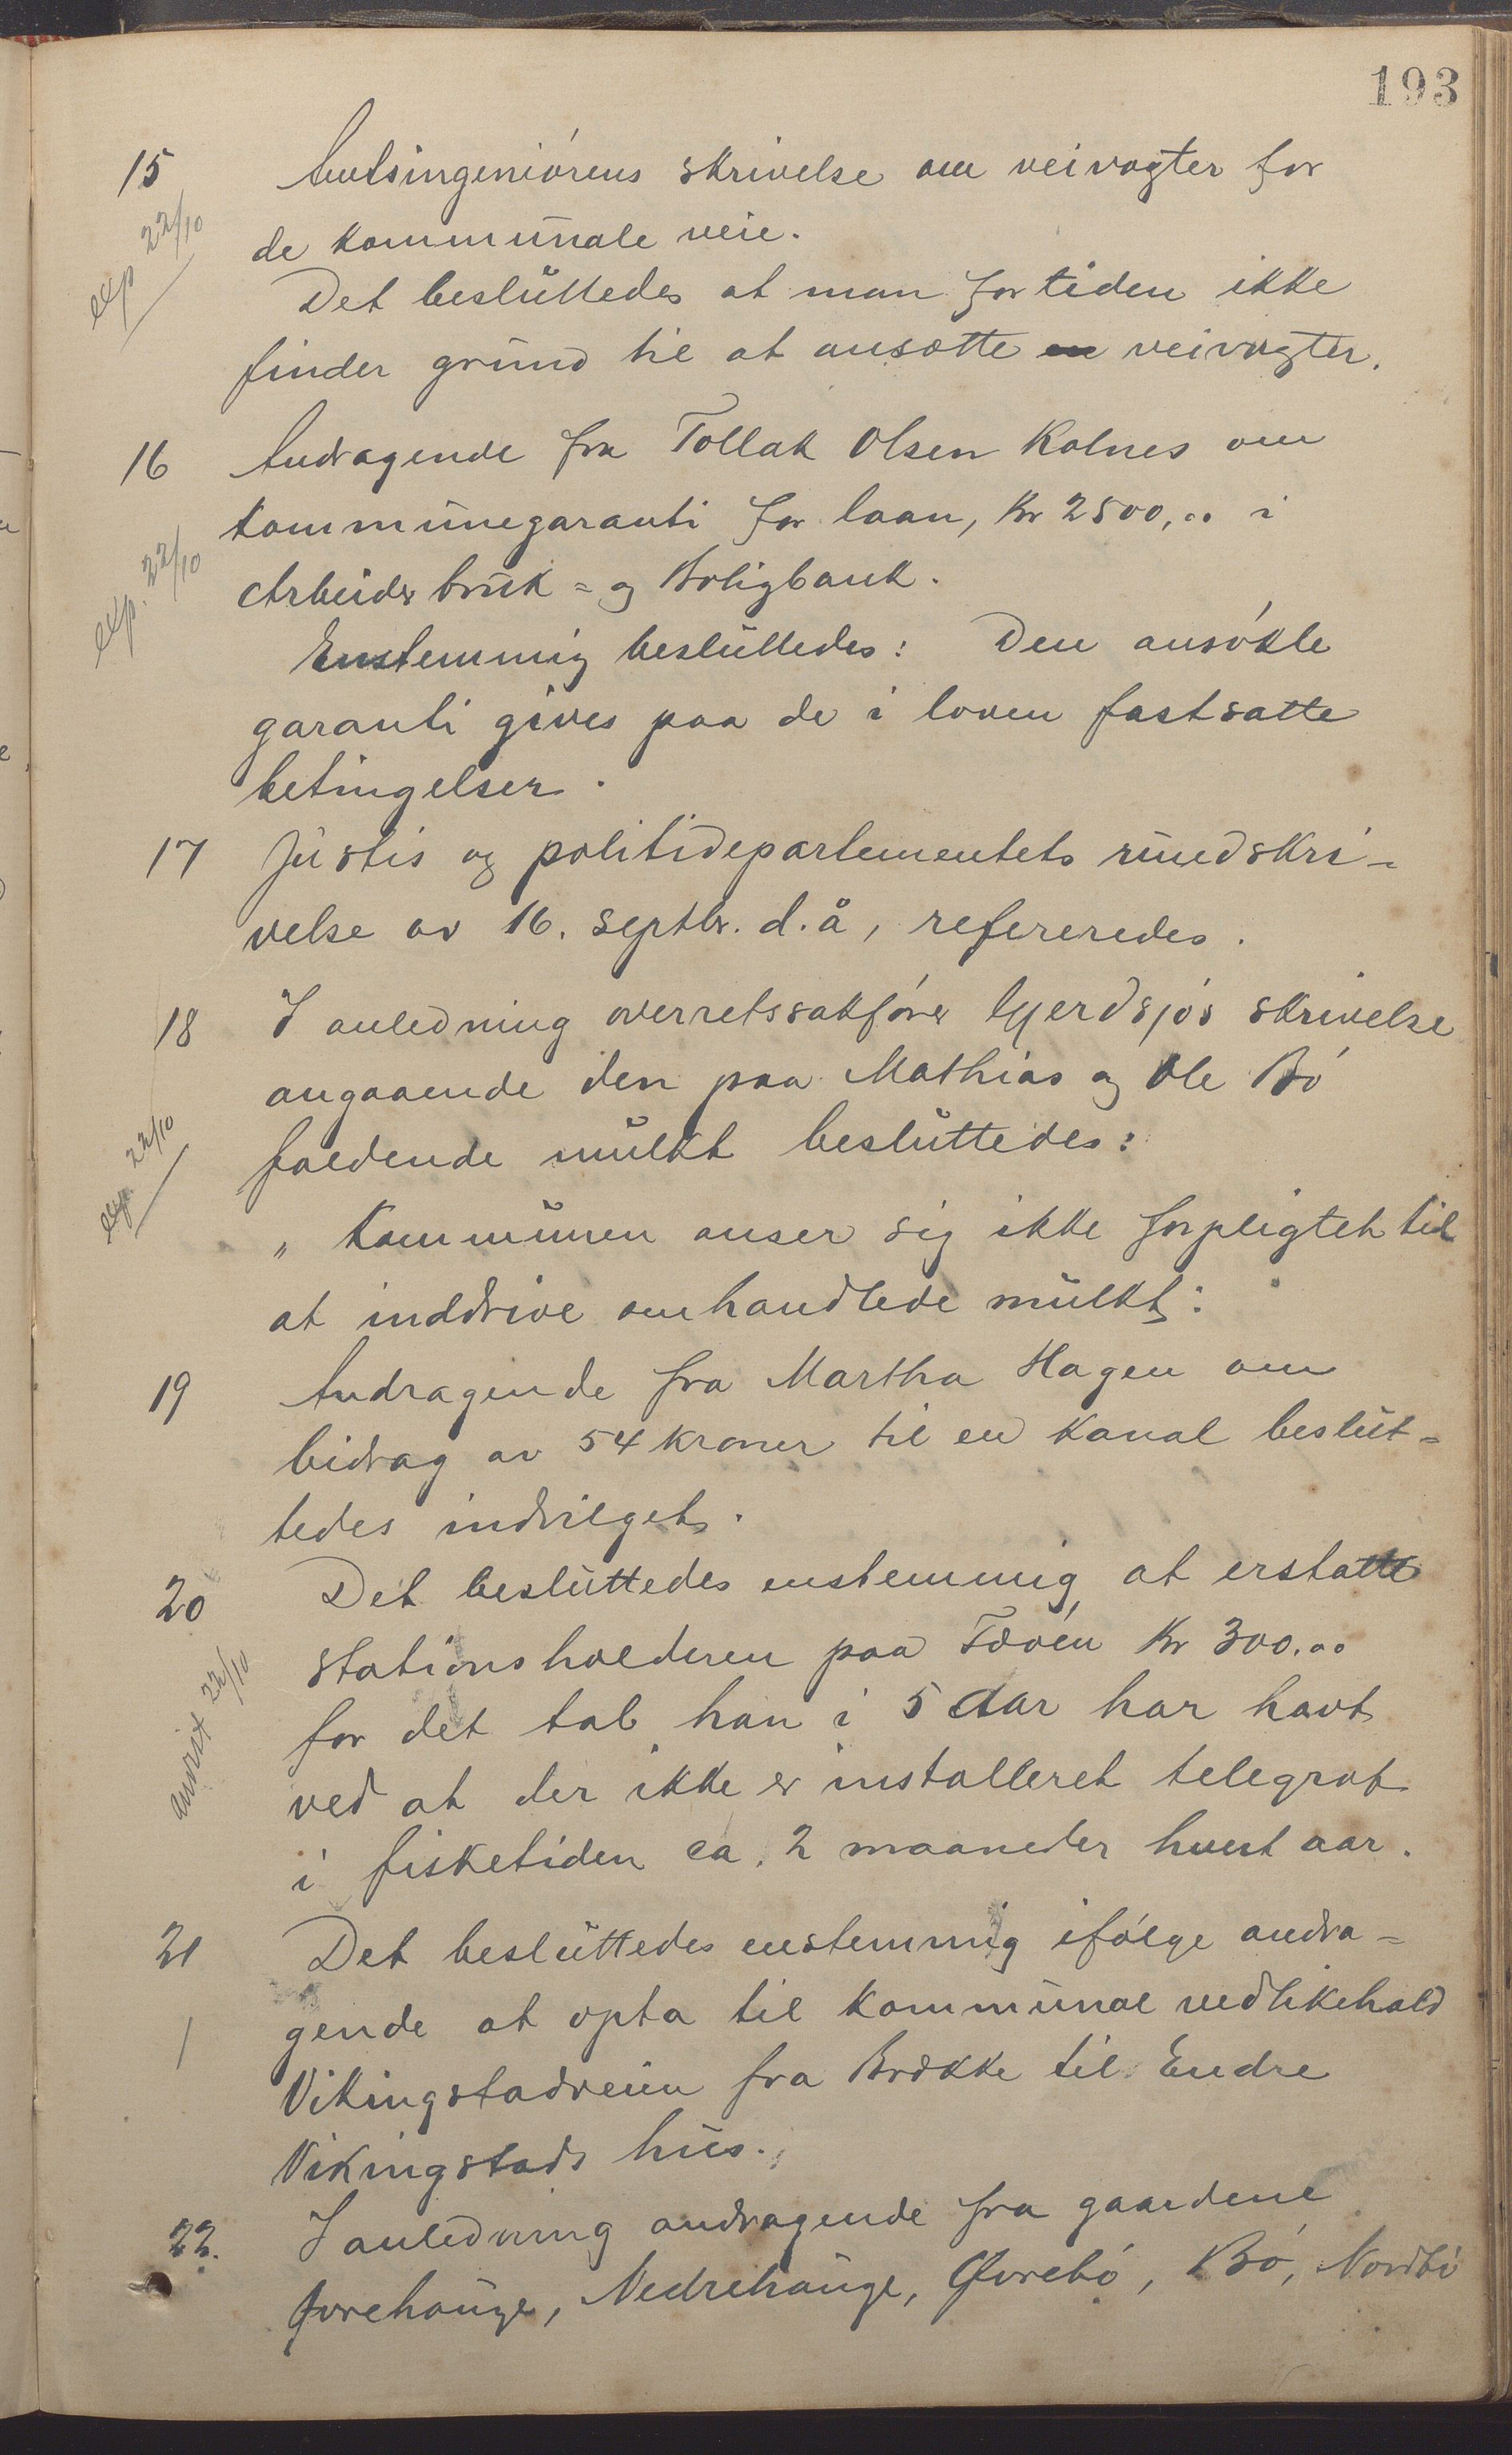 193
15 Amtsingeniørens skrivelse om veivogter for
exp 22/10
de kommunale veie.
Det besluttedes at man for tiden ikke
finder grund til at ansætte en veivogter.
16 Andragende fra Tollak Olsen Kolnes om
kommunegaranti for laan, Kr 2500,00 i
exp. 22/10
Arbeiderbruk= og Boligbank.
Enstemmig besluttedes: Den ansøkte
garanti gives paa de i loven fastsatte
betingelser.
17 Justis og politidepartementets rundskri-
velse av 16. septbr. d.å, refereredes.
18 I anledning overretssakfører Gjerdsjøs skrivelse
angaaende den paa Mathias og Ole Bø
exp 22/10
faldende mulkt besluttedes:
„ Kommunen anser sig ikke forpligtet til
at inddrive omhandlede mulkt."
19 Andragende fra Martha Hagen om
bidrag av 54 kroner til en kanal beslut=
tedes indvilget.
20 Det besluttedes enstemmig at erstatte
stationsholderen paa Føøen Kr 300.00
anvist 22/10
for det tab han i 5 Aar har havt
ved at der ikke er installeret telegraf
i fisketiden ca. 2 maaneder hvert aar.
21 Det besluttedes enstemmig ifølge andra=
gende at opta til kommunal vedlikehold
Vikingstadveien fra Brække til Endre
Vikingstads hus.
22. I anledning andragende fra gaardene
Øvrehauge, Nedrehauge, Øvrebø, Bø, Nordbø